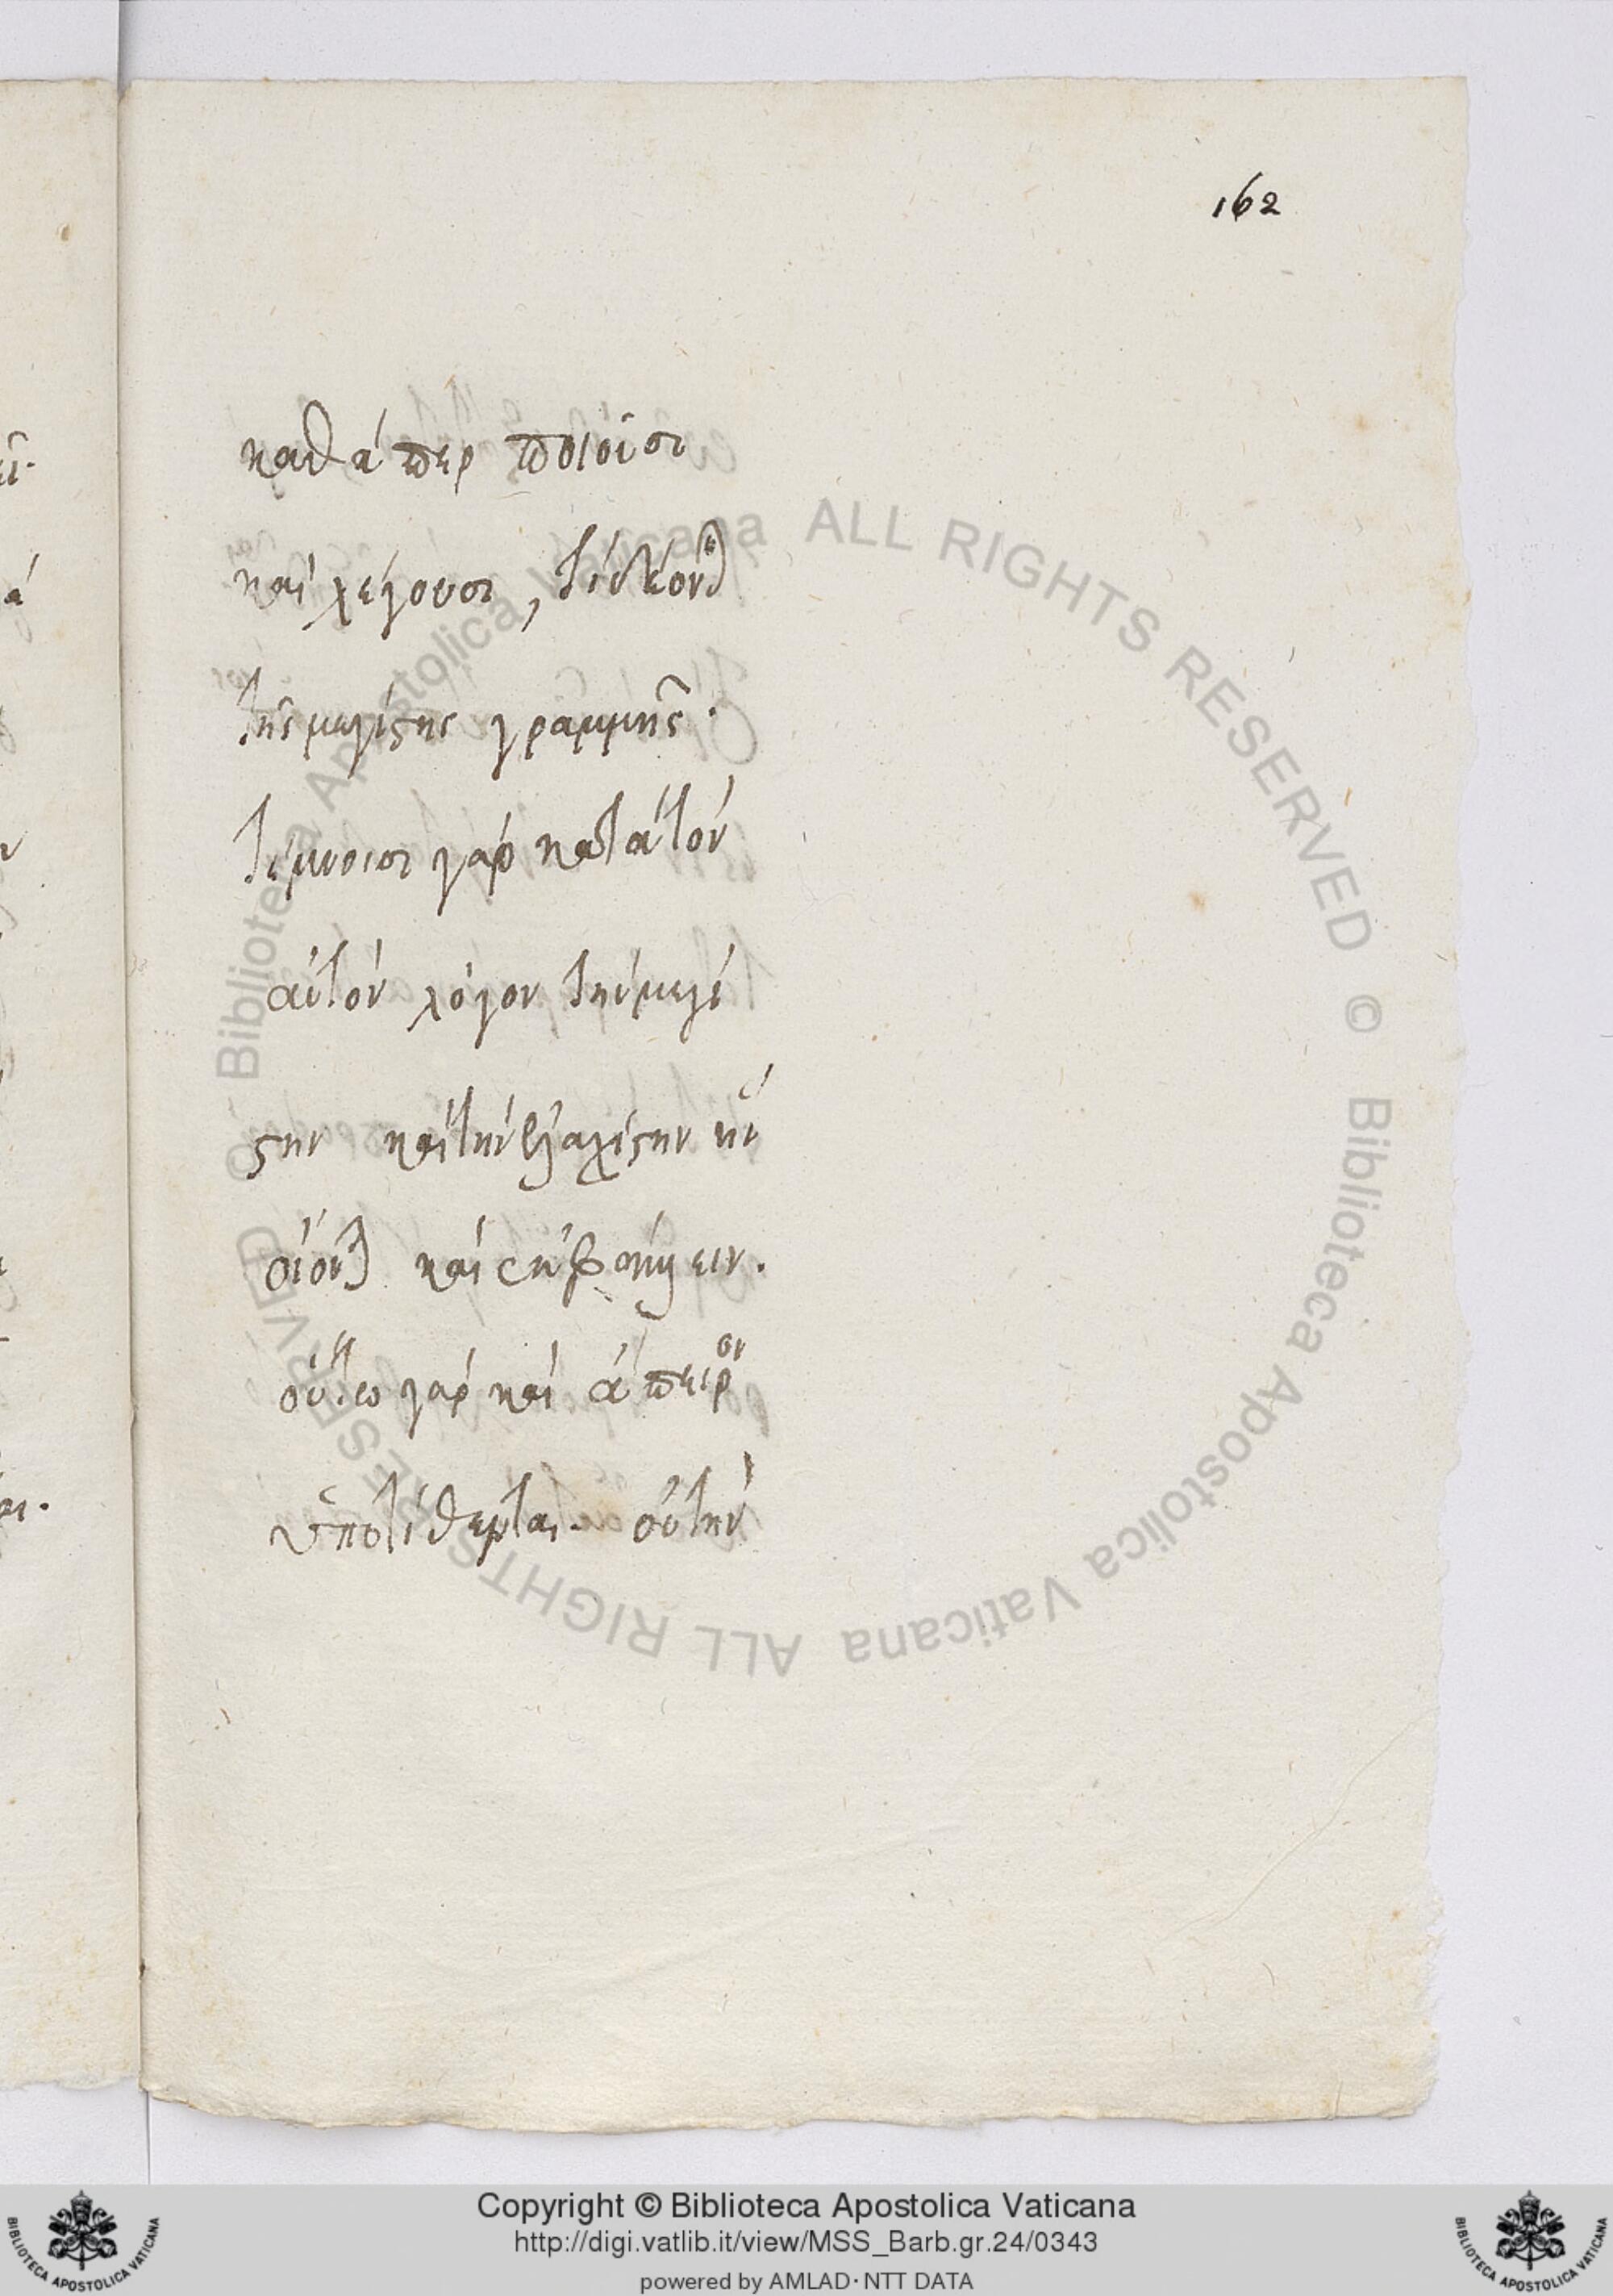 162
καθάπερ ποιοῦσι
καὶ λέγουσι,
τῆς μεγίστης γραμμῆς.
τέμνουσι γὰρ κατὰ τὸν
αὐτὸν λόγον τὴν μεγί
στην καὶ τὴν ἐλαχίστην ἣν
οἴονται καὶ
οὕτω γὰρ καὶ ἄπειρον
ὑποτίθενται. οὐ τὴν
Biblioteca Apostolica Vaticana ALL RIGHTS RESERVED © Biblioteca Apostolica Vaticana ALL RIGHTS RESERVED ©
Copyright © Biblioteca Apostolica Vaticana
http://digi.vatlib.it/view/MSS_Barb.gr.24/0343
powered by AMLAD·NTT DATA
BIBLIOTECA APOSTOLICA VATICANA
BIBLIOTECA APOSTOLICA VATICANA